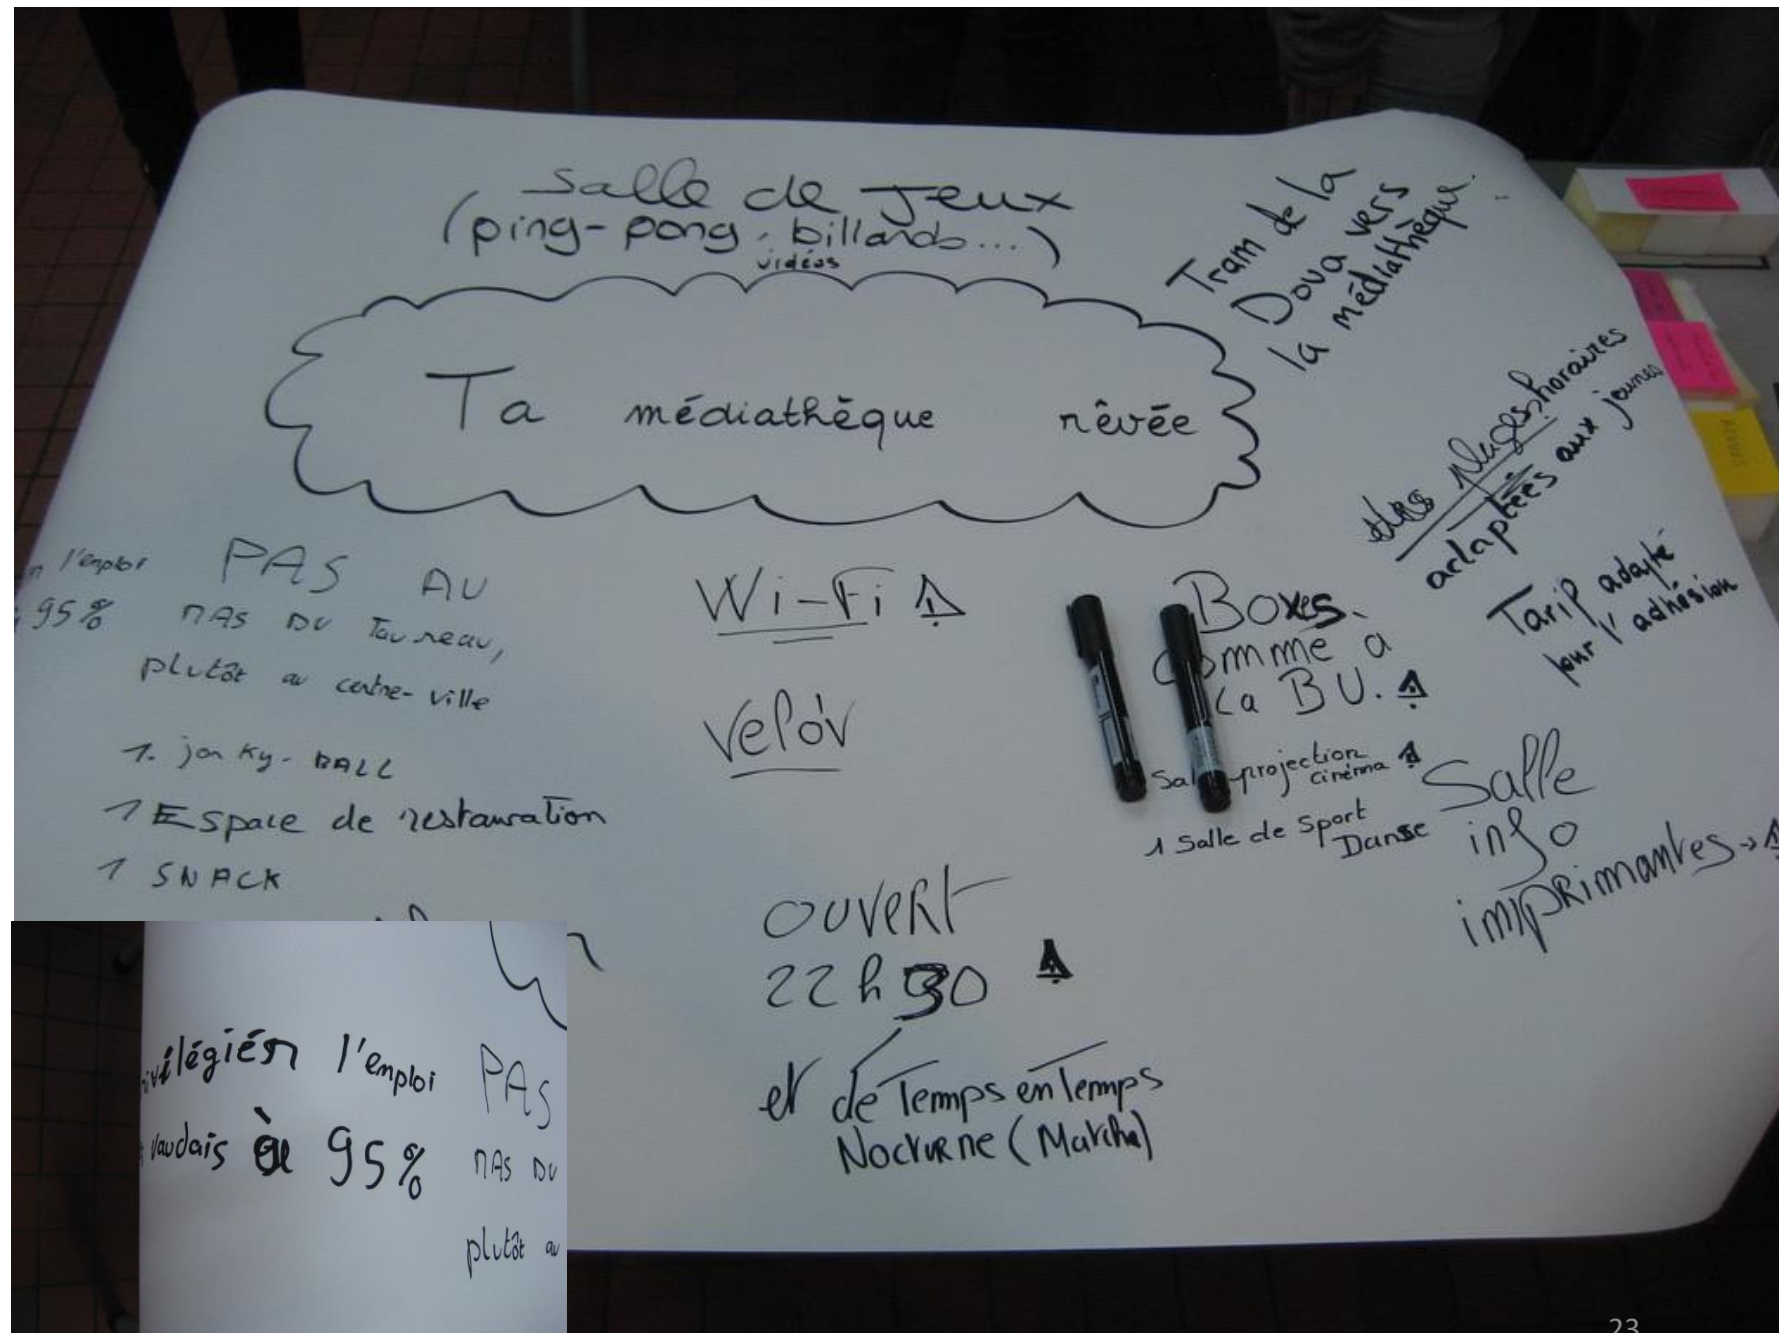 Salle de Jeux
(ping-pong, billards...)
vidéos
Tram de la
Doua vers
la médiathèque.
Ta médiathèque rêvée
plages horaires
adaptées aux jeunes
Tarif adapté
pour l'adhésion
l'emploi
95%
PAS AU
MAS DU Taureau,
plutôt au centre-ville
1. jorky-BALL
1 Espace de restauration
1 SNACK
Wi-Fi
Velo'v
Boxes
comme à
La BU.
projection
cinéma
1 Salle de Sport
Danse
Salle
info
imprimantes →
ouvert
22h30
et de Temps en Temps
Nocturne (Marche)
l'emploi PAS
vaudais à 95% MAS DU
plutôt au
23